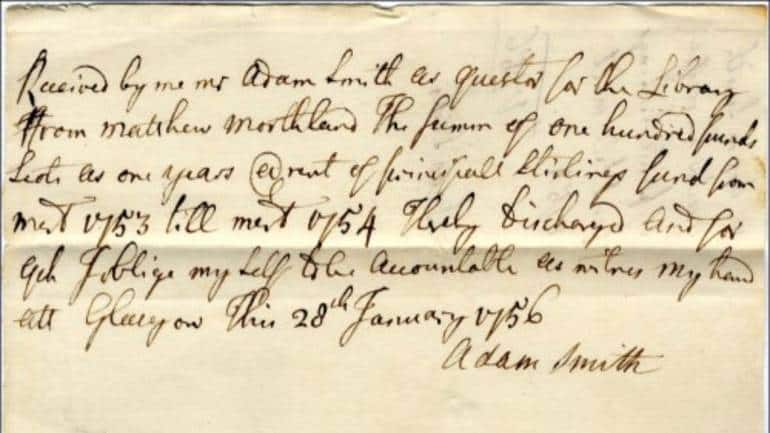 Received by me mr Adam Smith as questor for the Library
From matthew morthland The summ of one hundred punds
Scots as one years @rent of principall Stirlings fund from
mert 1753 till mert 1754 Hereby Discharged And for
qch I oblige my Self to be Accountable as witnes my hand
att Glasgow This 28th January 1756
Adam Smith